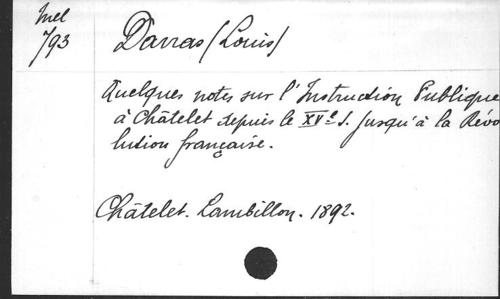 Mel
793
Darras (Louis)
Quelques notes sur l'Instruction Publique
à Châtelet depuis le XVe s. jusqu'à la Révo
lution française.
Châtelet. Lambillon. 1892.